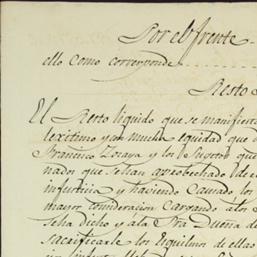 Por el frente
ello como corresponde
Resto
El Resto liquido que se manifiesta
lexitimo y por mucha equidad que
Francisco Zoraya y los Sugetos que
nados que se han aprobechado de
infurtiva y haviendo Causado los
mayor consideracion Cargando a los
seha dicho y ala Sra Dueña de
sacrificarle los Esquilmos de ellas